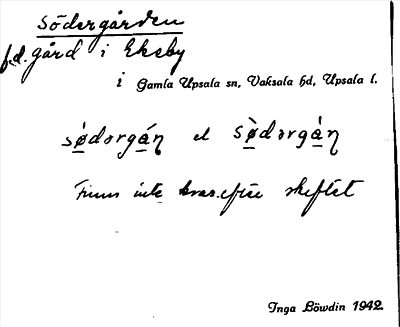 Södergården
f.d. gård i Ekeby
i Gamla Upsala sn, Vaksala hd, Upsala l.
sǿ̱dərgá̱ŋ el sø̱̀dərgà̱ŋ
Finns inte kvar efter skiftet
Inga Löwdin 1942.